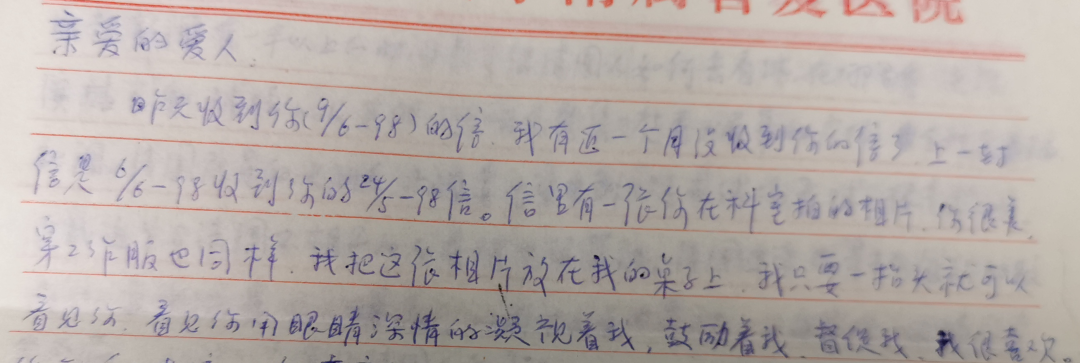 医院
亲爱的爱人.
昨天收到你(9/6-98)的信. 我有近一个月没收到你的信了. 上一封
信是 6/6-98收到你的 24/5-98信。信里有一张你在科室拍的相片. 你很美.
穿工作服也同样. 我把这张相片放在我的桌子上. 我只要一抬头就可以
看见你. 看见你用眼睛深情的凝视着我, 鼓励着我. 督促我. 我很喜欢